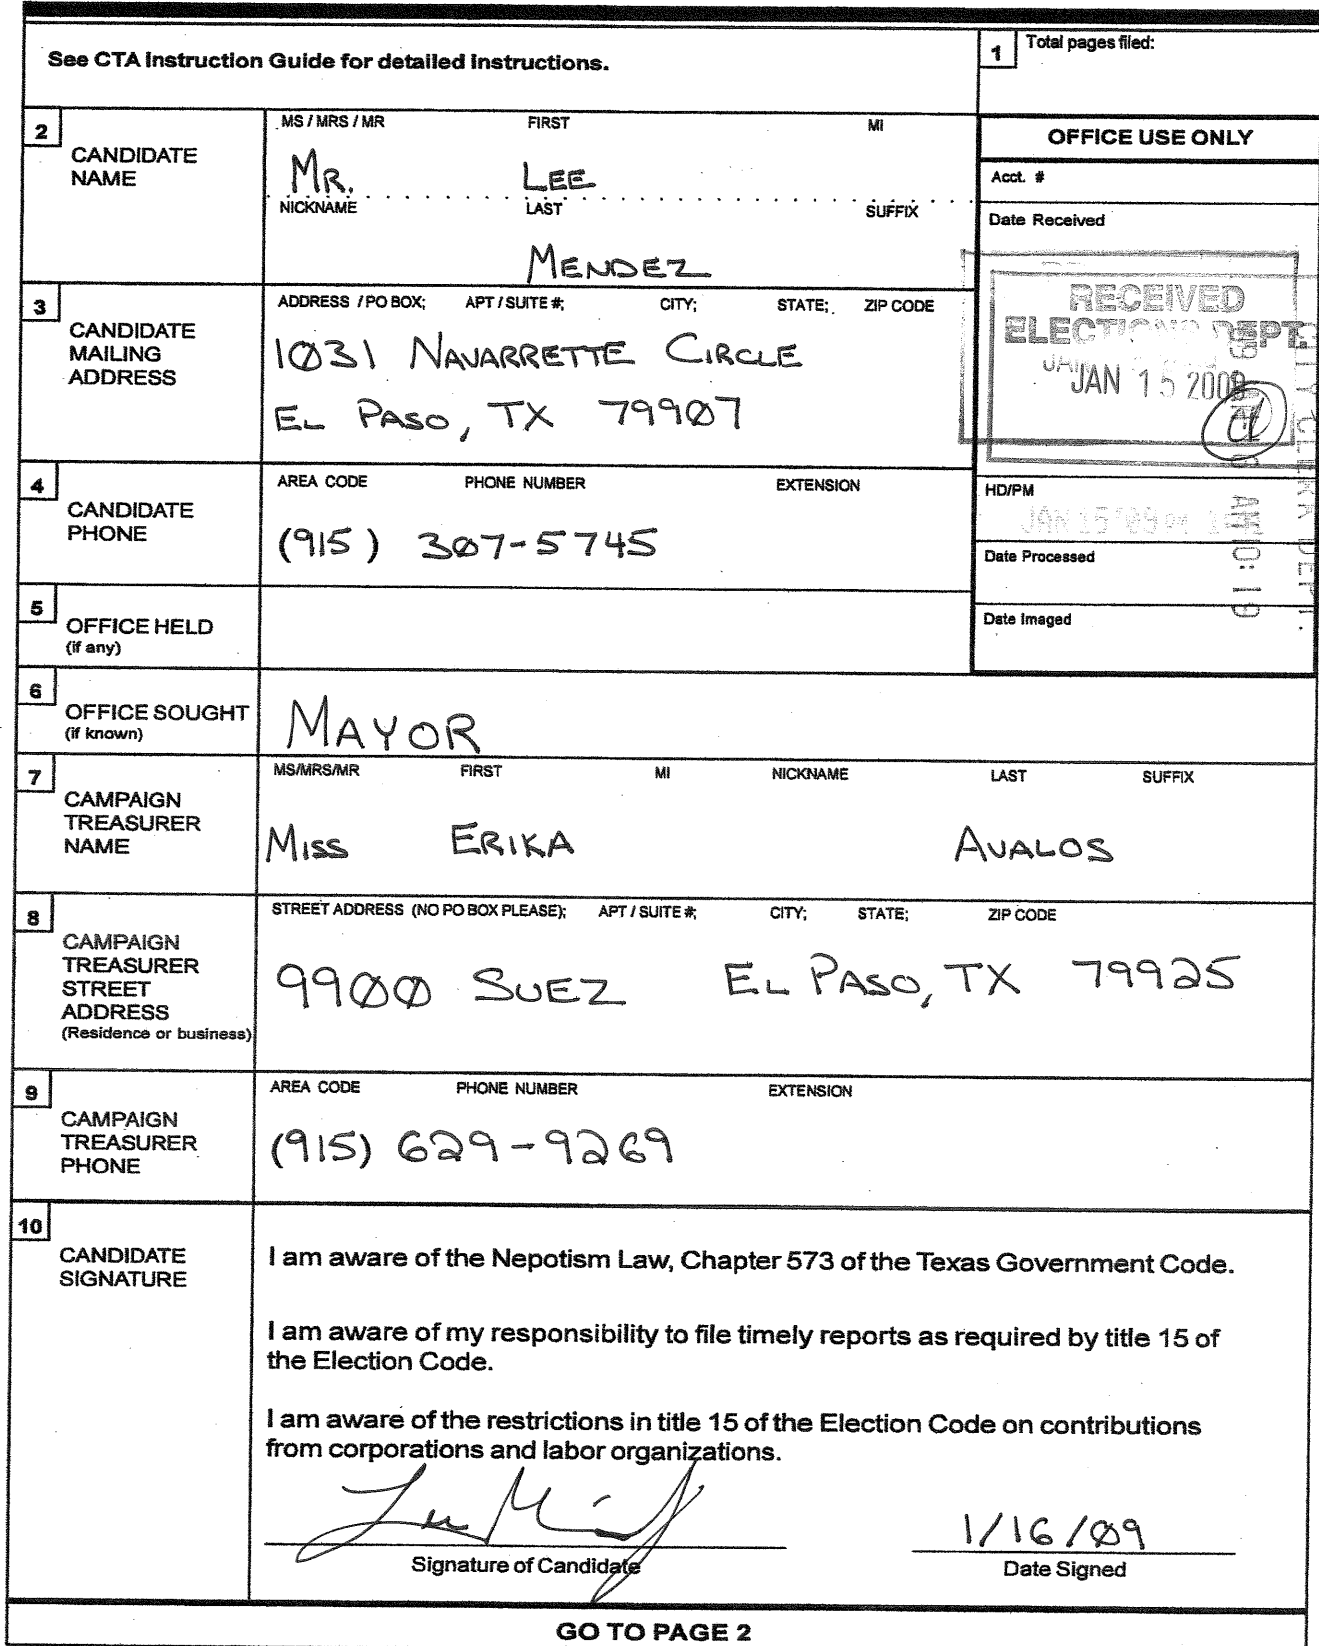 See CTA Instruction Guide for detailed instructions.
1 Total pages filed:
2 CANDIDATE NAME
MS / MRS / MR FIRST MI
MR. LEE
NICKNAME LAST SUFFIX
MENDEZ
OFFICE USE ONLY
Acct. #
Date Received
RECEIVED
ELECTIONS DEPT.
JAN 15 2009
CITY CLERK DEPT.
AM 10: 19
3 CANDIDATE MAILING ADDRESS
ADDRESS / PO BOX; APT / SUITE #; CITY; STATE; ZIP CODE
1031 NAVARRETTE CIRCLE
EL PASO, TX 79907
4 CANDIDATE PHONE
AREA CODE PHONE NUMBER EXTENSION
(915) 307-5745
HD/PM
JAN 15 '09 PM
Date Processed
Date Imaged
5 OFFICE HELD
(if any)
6 OFFICE SOUGHT
(if known)
MAYOR
7 CAMPAIGN TREASURER NAME
MS/MRS/MR FIRST MI NICKNAME LAST SUFFIX
MISS ERIKA AVALOS
8 CAMPAIGN TREASURER STREET ADDRESS
(Residence or business)
STREET ADDRESS (NO PO BOX PLEASE); APT / SUITE #; CITY; STATE; ZIP CODE
9900 SUEZ EL PASO, TX 79925
9 CAMPAIGN TREASURER PHONE
AREA CODE PHONE NUMBER EXTENSION
(915) 629-9269
10 CANDIDATE SIGNATURE
I am aware of the Nepotism Law, Chapter 573 of the Texas Government Code.
I am aware of my responsibility to file timely reports as required by title 15 of
the Election Code.
I am aware of the restrictions in title 15 of the Election Code on contributions
from corporations and labor organizations.
1/16/09
Signature of Candidate Date Signed
GO TO PAGE 2